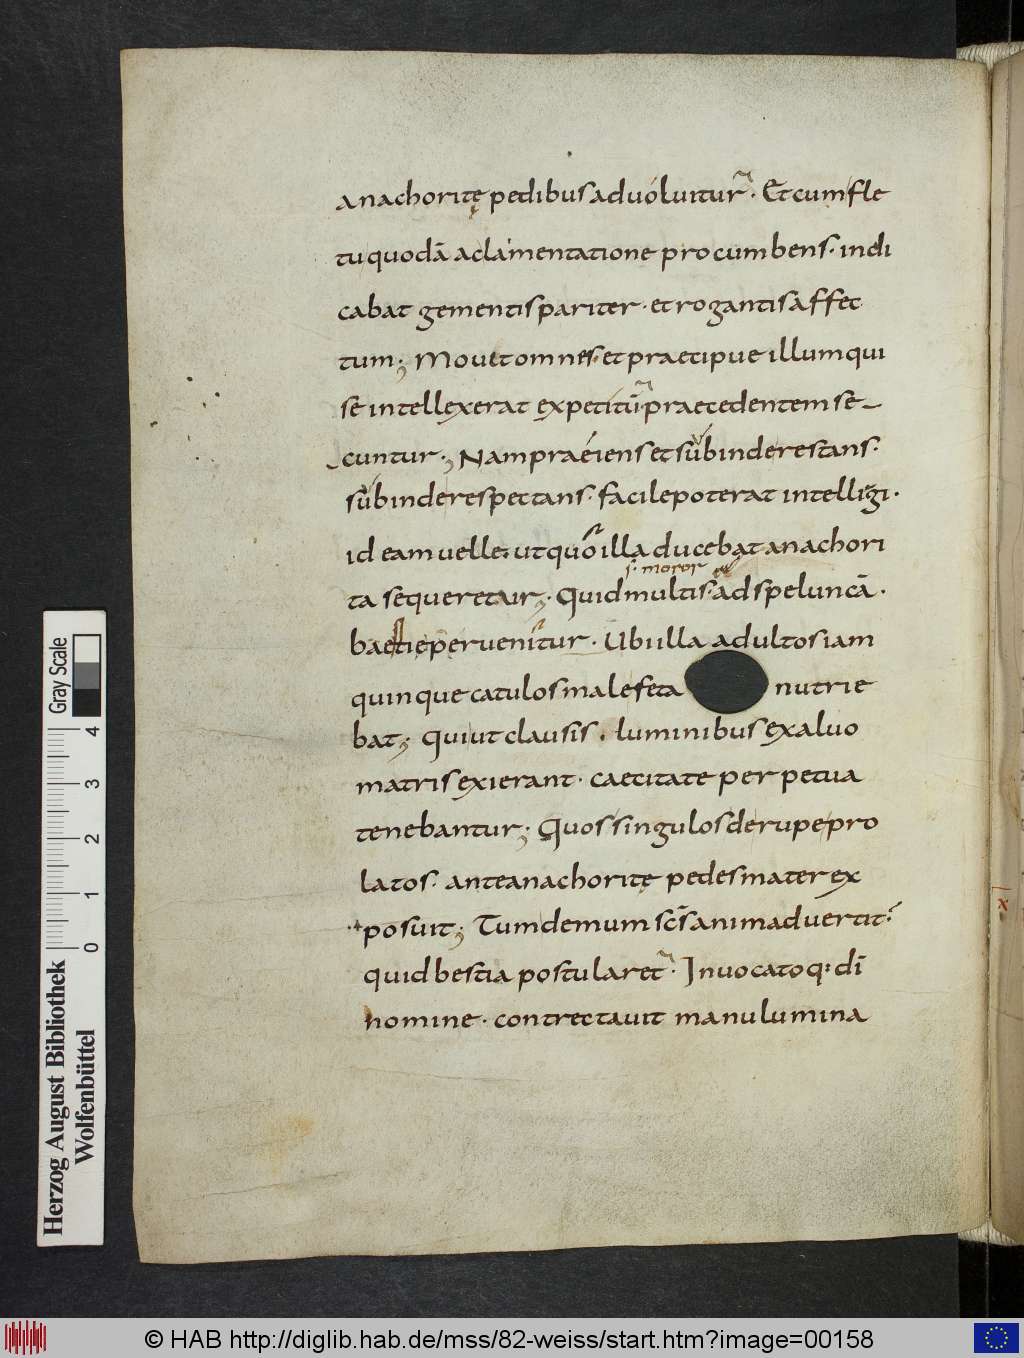 anachoritę pedibus aduoluitur. Et cum fle
tu quodā aclamentatione procumbens. indi
cabat gementis pariter. et rogantis affec
tum; Mouet omnes. et praecipue illum qui
se intellexerat expetitū praecedentem se
cuntur; Nam praeiens et subinde restans.
subinde respectans. facile poterat intelligi.
id eam uelle. ut quo illa ducebat anachori
s. moror
ta sequeretur; Quid multis. ad speluncā.
bestię peruenitur. Ubi illa adultos iam
quinque catulos male feta nutrie
bat; Qui ut clausis. luminibus ex aluo
matris exierant. caecitate perpetua
tenebantur; Quos singulos de rupe pro
latos. ante anachoritę pedes mater ex
posuit; Tum demum sc̄s animaduertit.
quid bestia postularet. Inuocatoq: dī
nomine. contrectauit manu lumina
x
Gray Scale
4
3
2
1
0
Herzog August Bibliothek
Wolfenbüttel
© HAB http://diglib.hab.de/mss/82-weiss/start.htm?image=00158